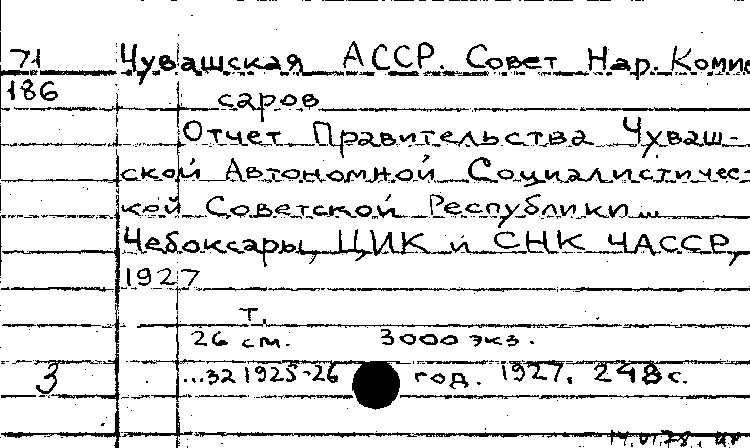 71 Чувашская АССР. Совет Нар. Комис
186 саров
Отчет Правительства Чуваш-
ской Автономной Социалистичес-
кой Советской Республики...
Чебоксары, ЦИК и СНК ЧАССР,
1927
т.
26 см. 3000 экз.
3 ...за 1925-26 год. 1927. 248 с.